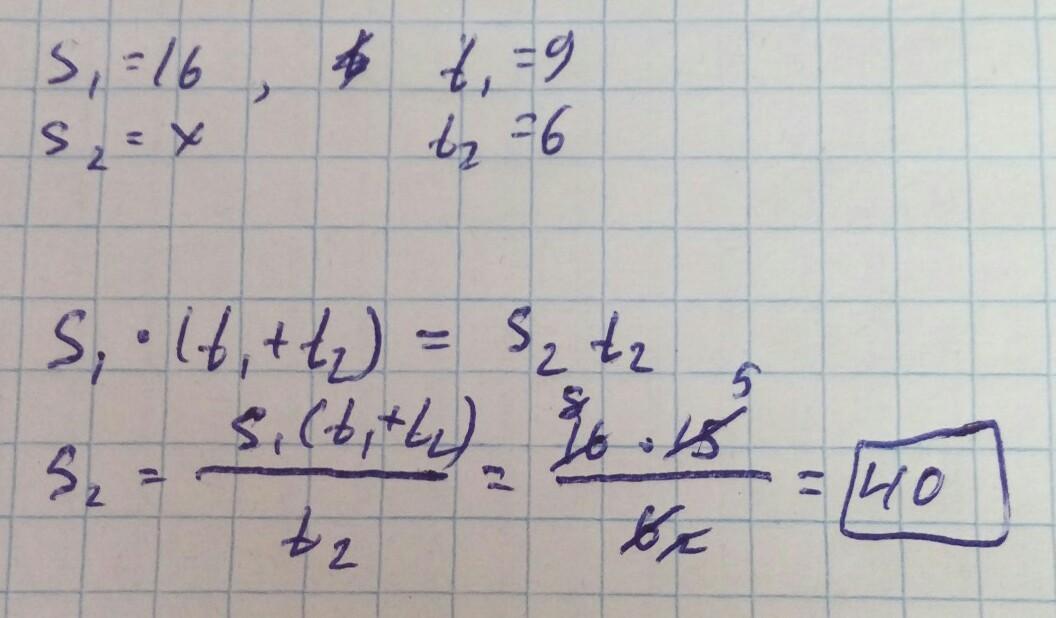 S₁ = 16 , t₁ = 9
S₂ = x t₂ = 6
S₁ · (t₁ + t₂) = S₂ t₂
S₂ = S₁ (t₁ + t₂) / t₂ = 16 8 · 15 5 / 6 2 = 40